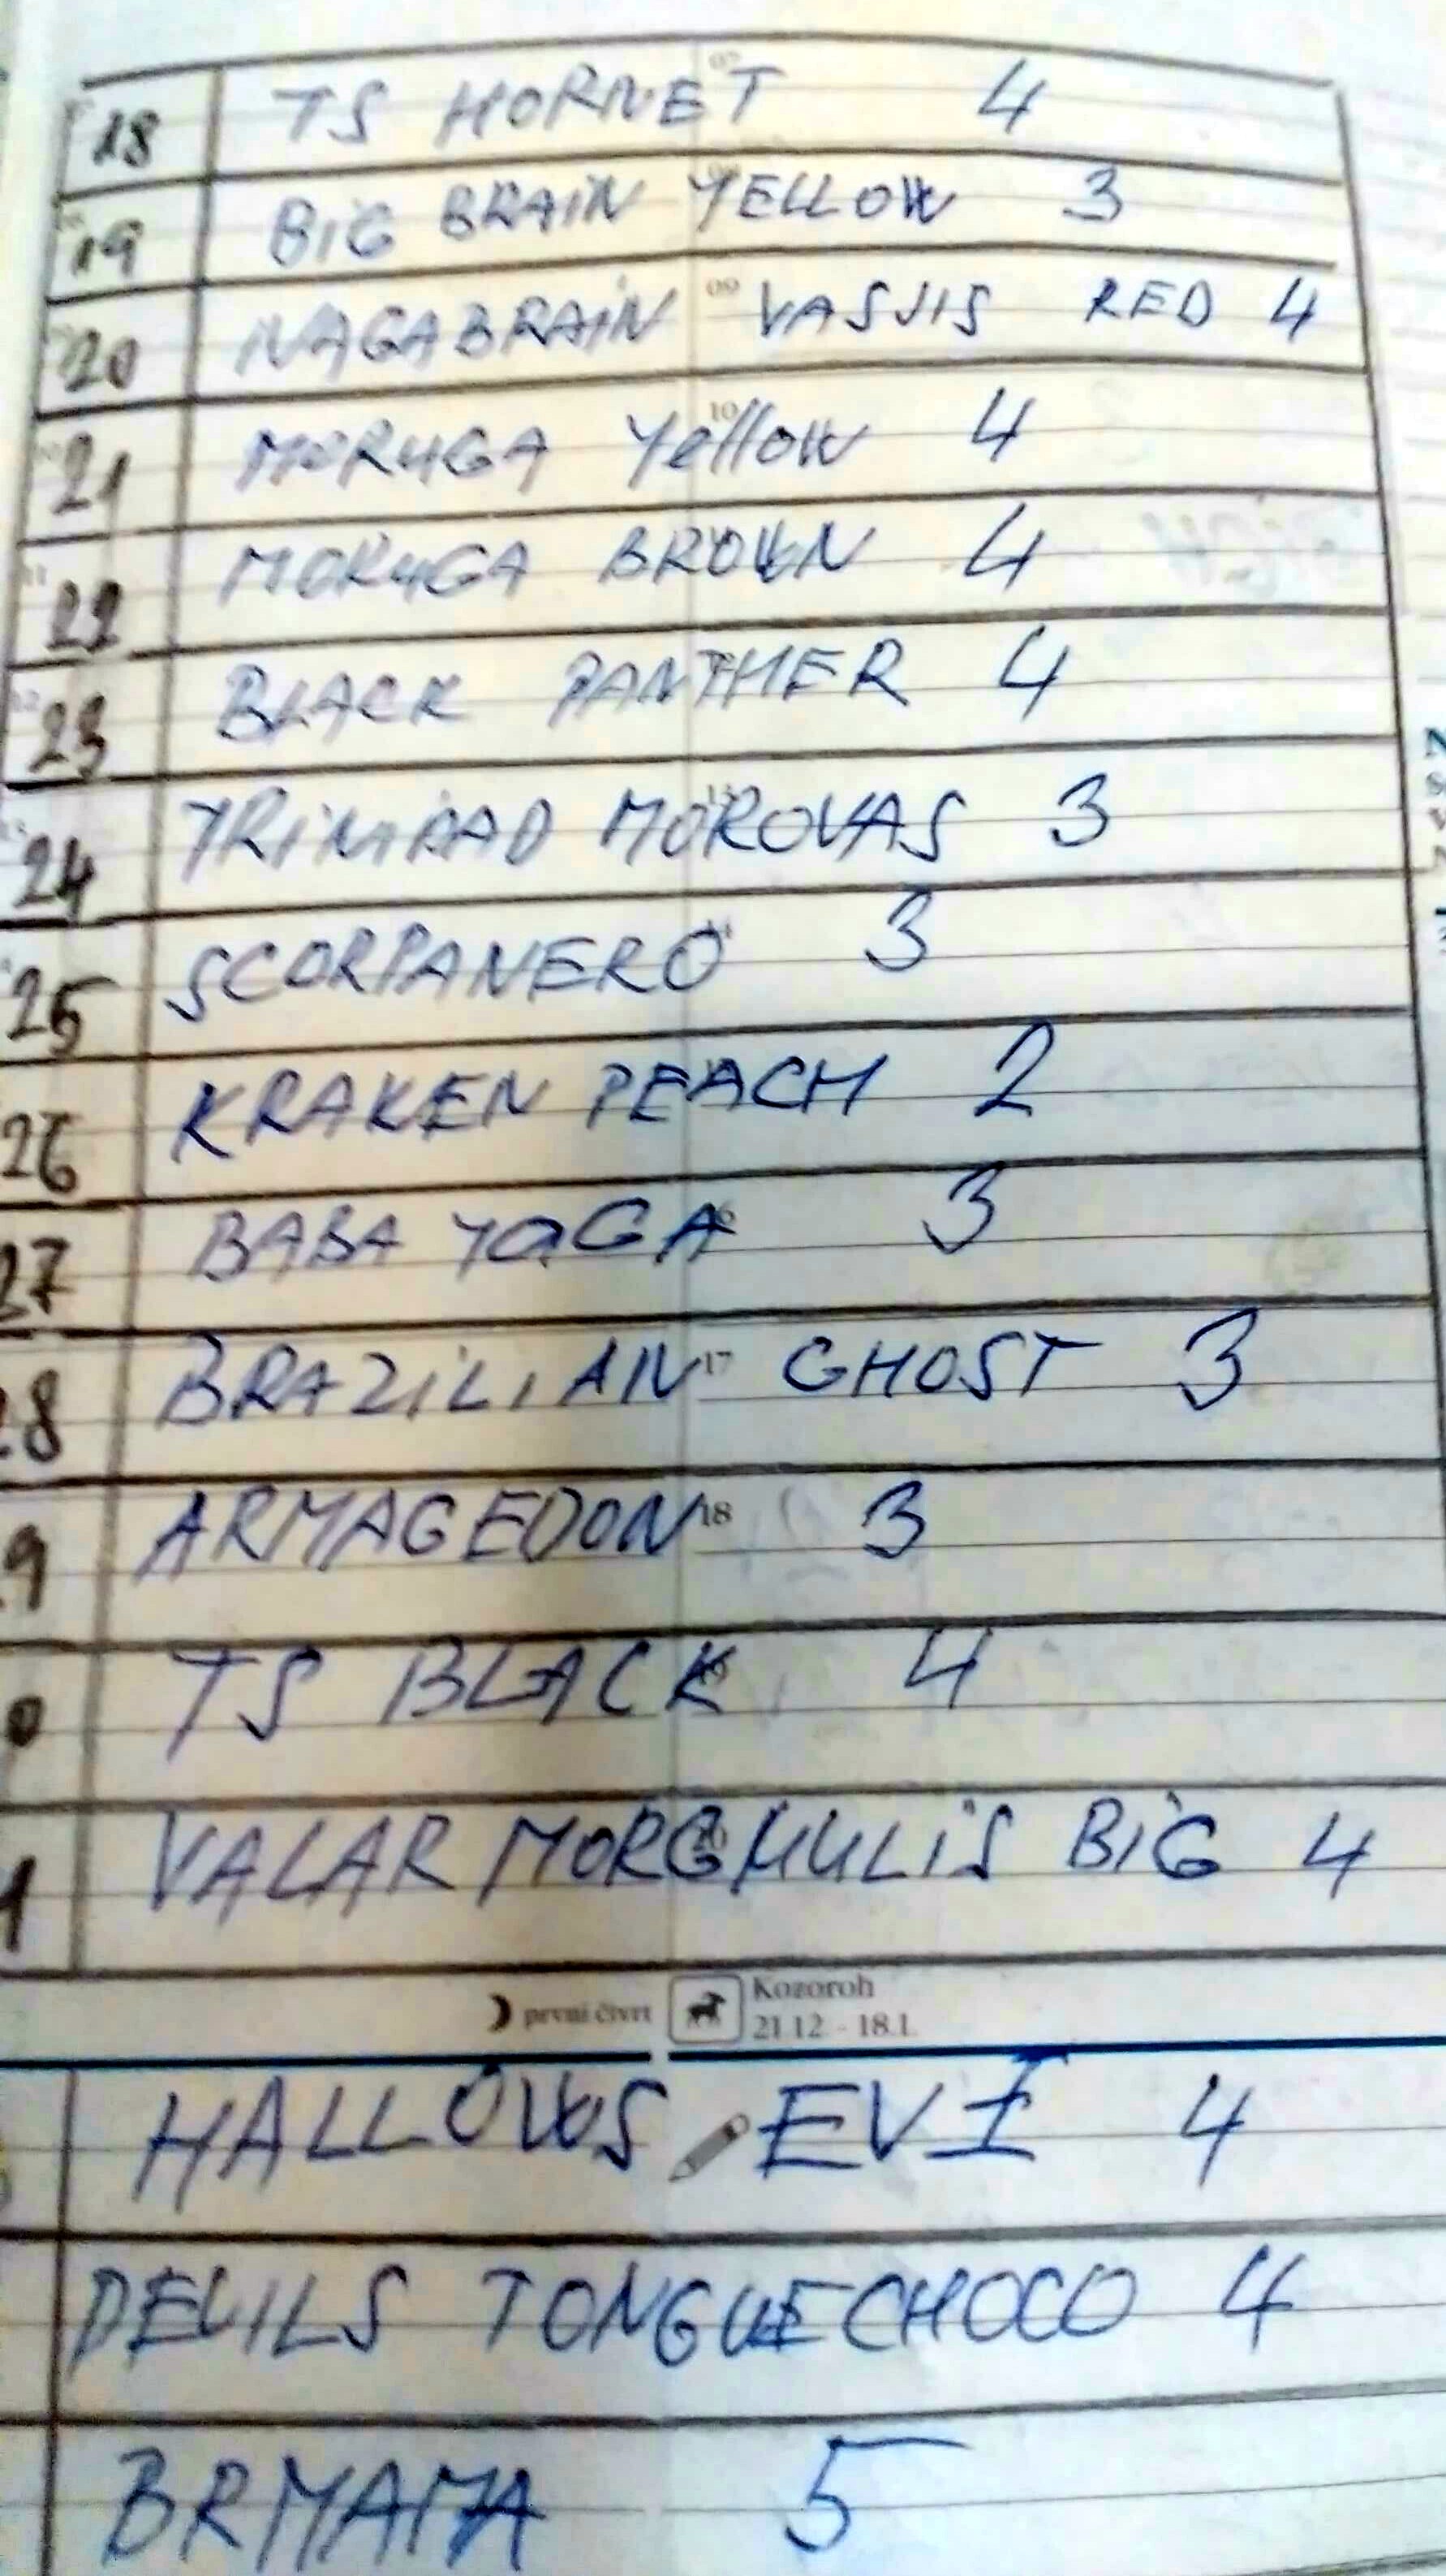 18 TS HORNET 4
19 BIG BRAIN YELLOW 3
20 NAGABRAIN VASJIS RED 4
21 MORUGA Yellow 4
22 MORUGA BROWN 4
23 BLACK PANTHER 4
24 TRINIDAD MOROVAS 3
25 SCORPANERO 3
26 KRAKEN PEACH 2
27 BABA YAGA 3
28 BRAZILIAN GHOST 3
9 ARMAGEDON 18 3
0 TS BLACK 4
1 VALAR MORGHULIS BIG 4
první čtvrt Kozoroh
21.12. - 18.1.
HALLOWS EVE 4
DEVILS TONGUE CHOCO 4
BRMAMA 5